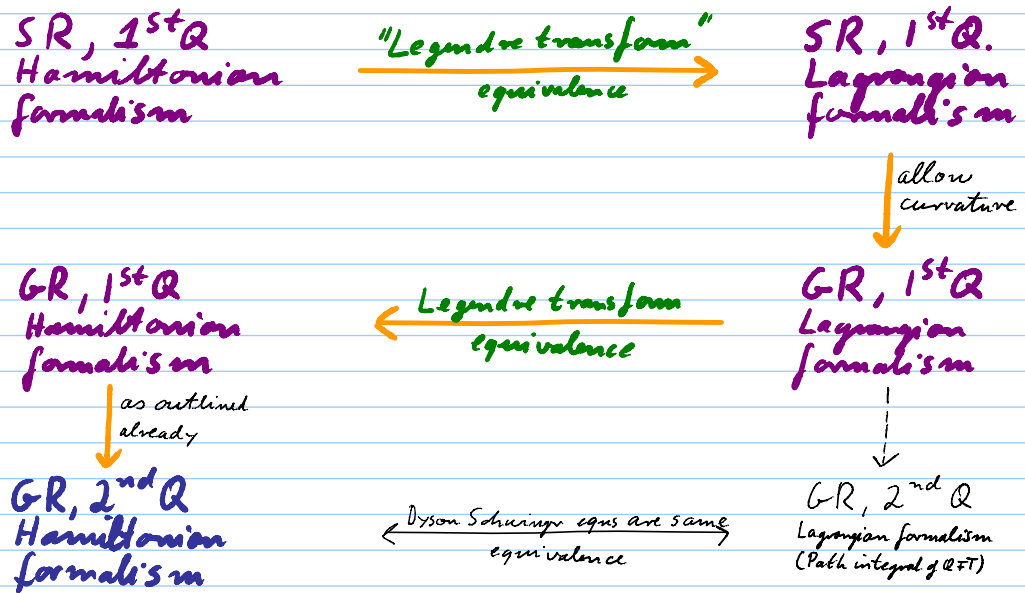 SR, 1st Q
Hamiltonian
formalism
"Legendre transform"
equivalence
SR, 1st Q.
Lagrangian
formalism
allow
curvature
GR, 1st Q
Hamiltonian
formalism
Legendre transform
equivalence
GR, 1st Q
Lagrangian
formalism
as outlined
already
GR, 2nd Q
Hamiltonian
formalism
Dyson Schwinger equs are same
equivalence
GR, 2nd Q
Lagrangian formalism
(Path integral of QFT)